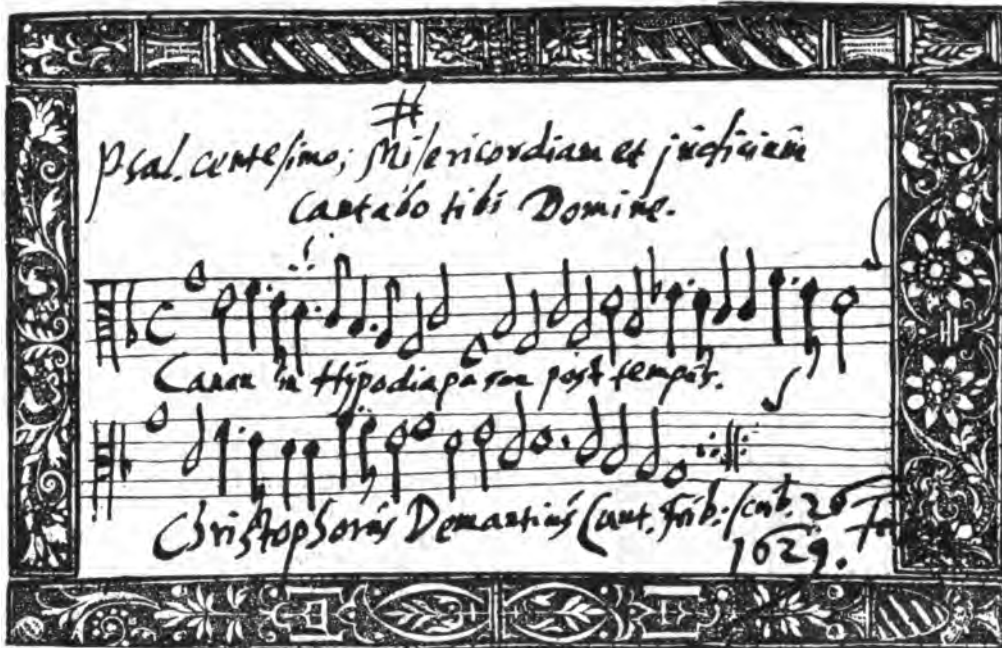 Psal. centesimo; Misericordiam et judicium
Cantabo tibi Domine.
Canon in Hypodiapason post tempus.
Christophorus Demantius Cant. Frib. scrib. 26 Feb
1629.